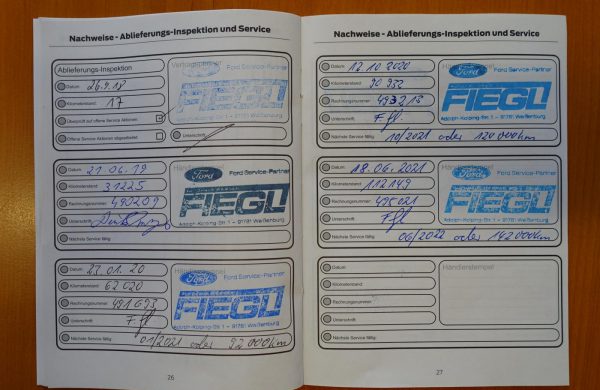 Nachweise - Ablieferungs-Inspektion und Service
Ablieferungs-Inspektion
Datum 26.9.18
Kilometerstand 17
Überprüft auf offene Service Aktionen
Offene Service Aktionen abgearbeitet
Unterschrift
Ford Ford Service-Partner
FIEGL
Adolph-Kolping-Str. 1 - 91781 Weißenburg
Datum 21.06.19
Kilometerstand 31225
Rechnungsnummer 490209
Unterschrift
Nächste Service fällig
Ford Ford Service-Partner
FIEGL
Adolph-Kolping-Str. 1 - 91781 Weißenburg
Datum 23.01.20
Kilometerstand 62020
Rechnungsnummer 491693
Unterschrift
Nächste Service fällig 01/2021 oder 92000km
Ford Ford Service-Partner
FIEGL
Adolph-Kolping-Str. 1 - 91781 Weißenburg
26
Nachweise - Ablieferungs-Inspektion und Service
Datum 12.10.2020
Kilometerstand 90 932
Rechnungsnummer 493213
Unterschrift
Nächste Service fällig 10/2021 oder 120000km
Ford Ford Service-Partner
FIEGL
Adolph-Kolping-Str. 1 - 91781 Weißenburg
Datum 18.06.2021
Kilometerstand 112149
Rechnungsnummer 495021
Unterschrift
Nächste Service fällig 06/2022 oder 142000km
Ford Ford Service-Partner
FIEGL
Adolph-Kolping-Str. 1 - 91781 Weißenburg
Datum
Kilometerstand
Rechnungsnummer
Unterschrift
Nächste Service fällig
Händlerstempel
27